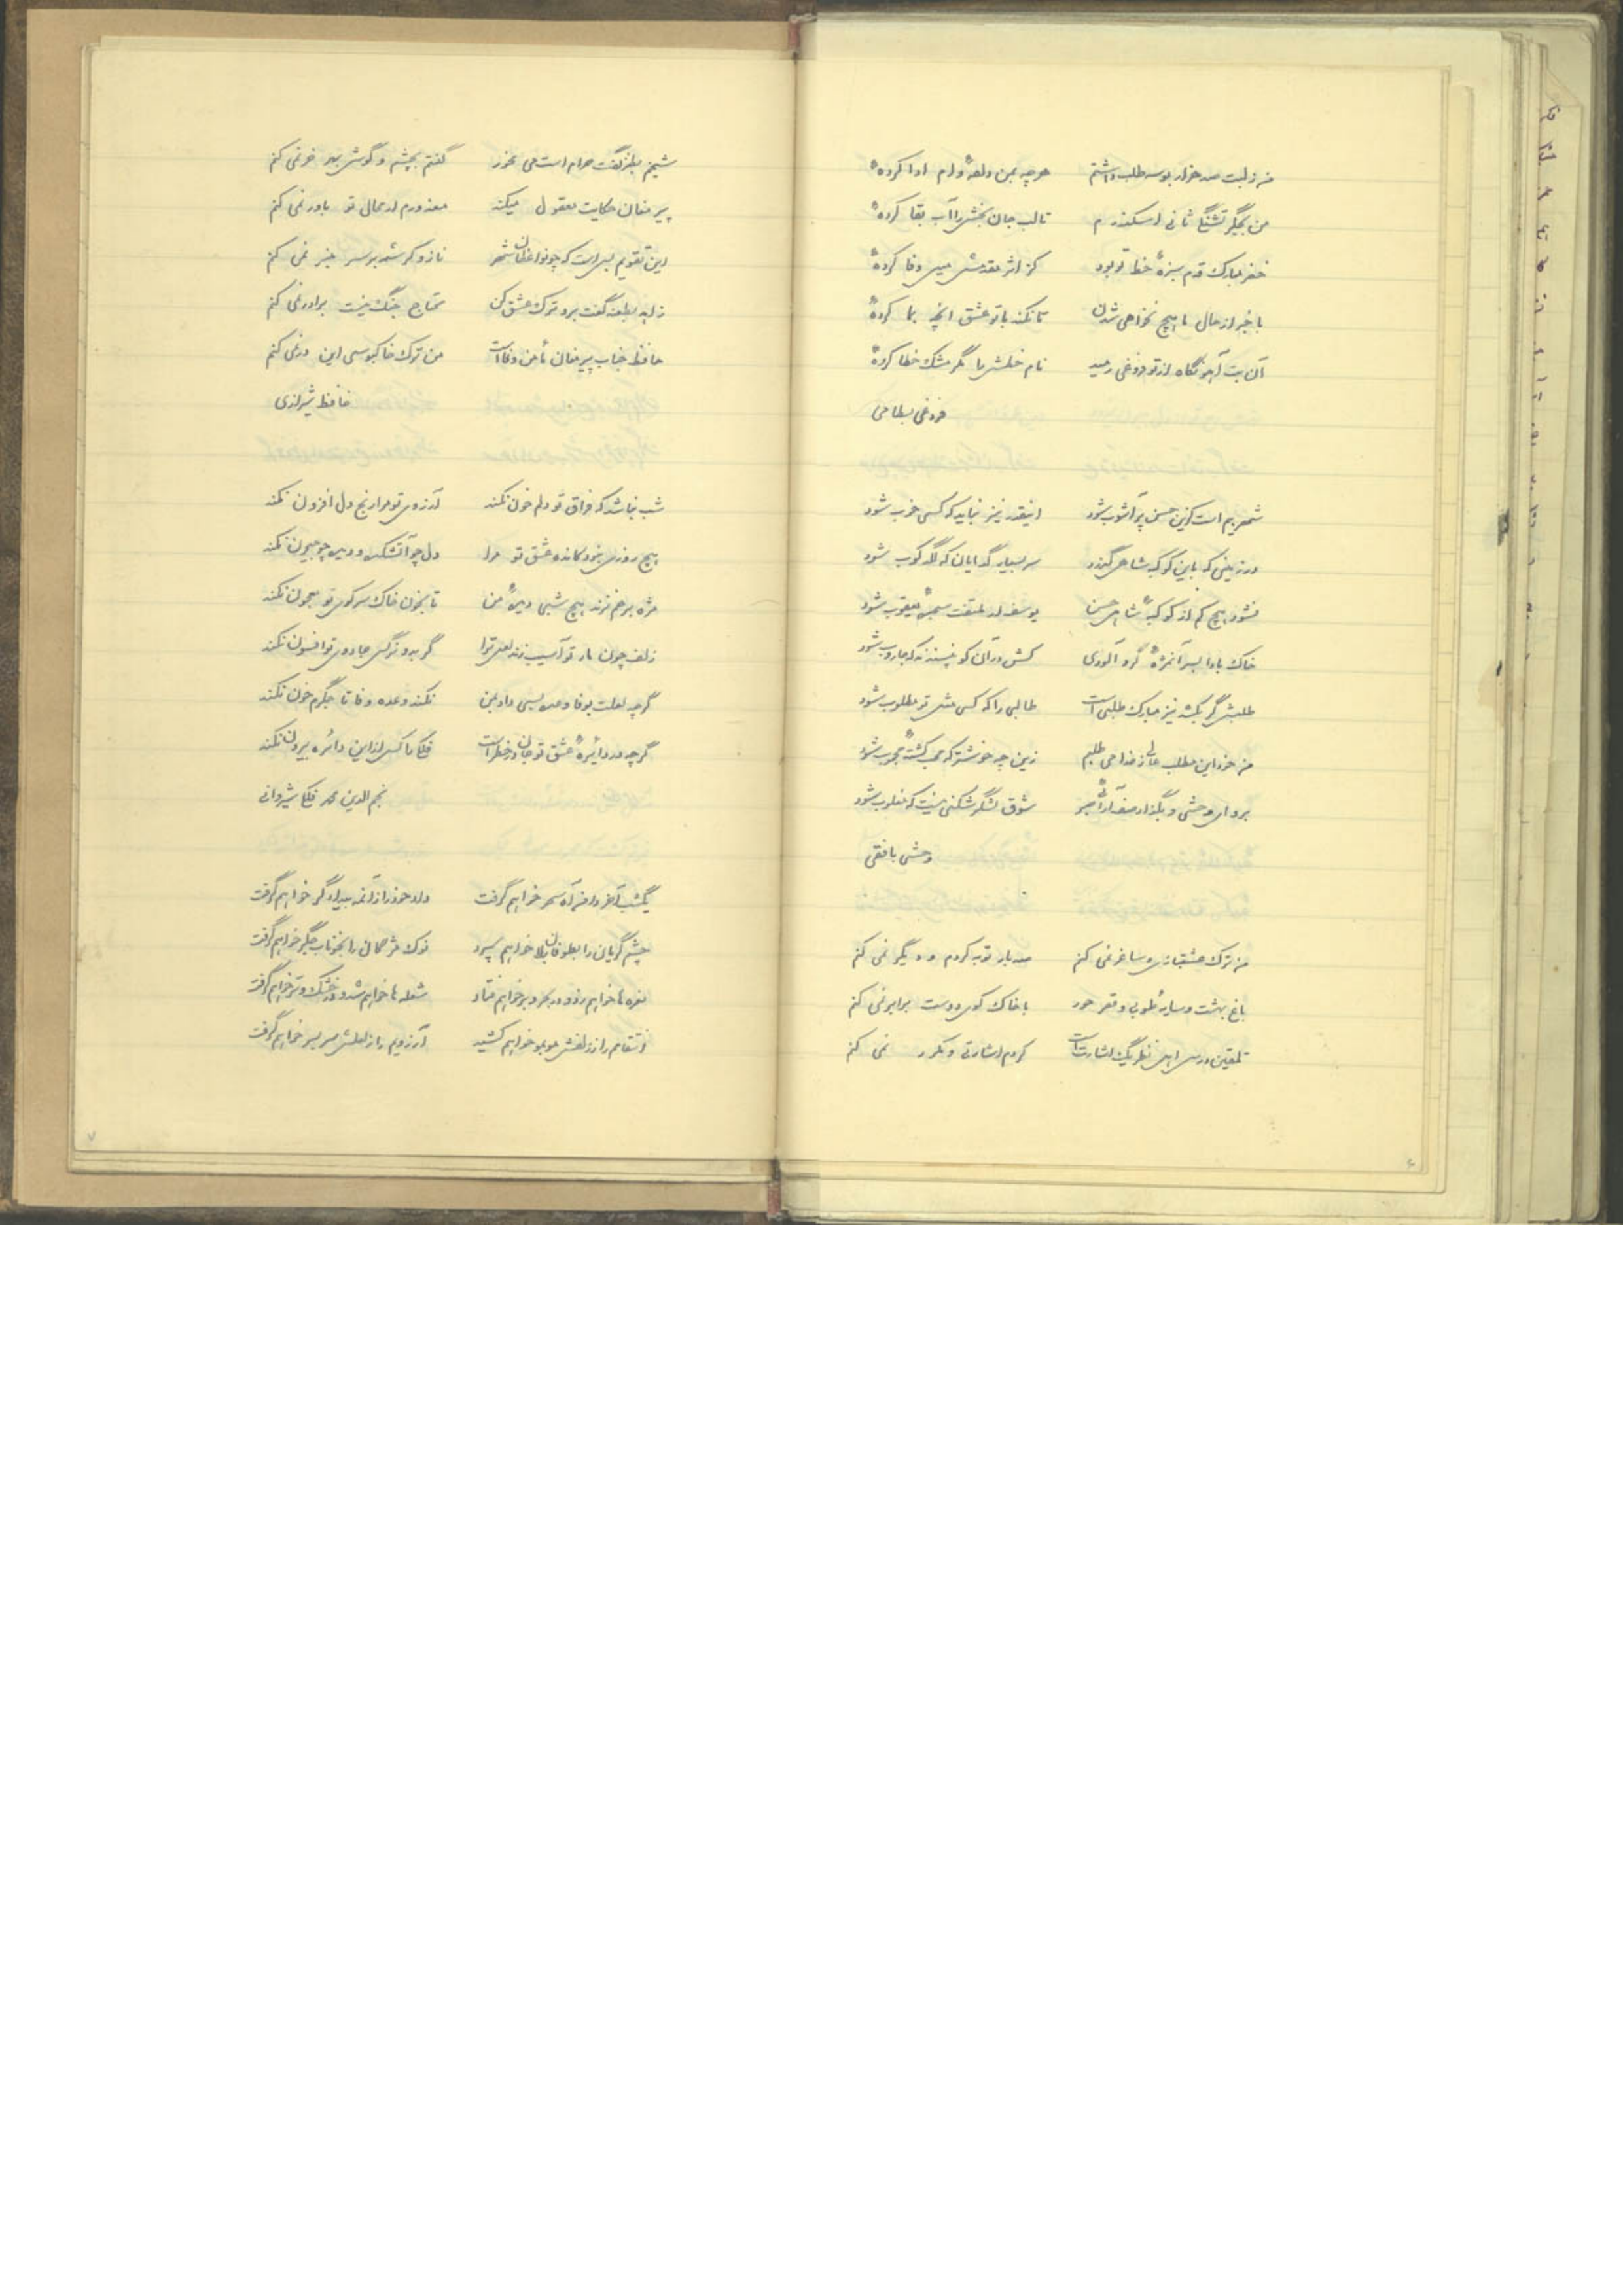 من زلبت صد هزار بوسه طلب داشتم هر چه بمن وعدهٔ وام ادا کردهٔ
من بجگر تشنگی ثانی اسکندرم تا لب جان بخش را آب بقا کردهٔ
خضر مبارک قدم سبزهٔ خط تو بود کز اثر مقدمش میل وفا کردهٔ
با خبر از حال ما هیچ نخواهی شدن تا نکند با تو عشق آنچه بما کردهٔ
آن بت آهو نگاه از تو فروغی رمید نام خطش را مگر مشک خطا کردهٔ
فروغی بسطامی
شهر بیم است کزین حسن پر آشوب شود اینقدر نیز نباید که کسی خوب شود
در زمینی که باین کوکبه شاهی گذرد سر بسیار گدایان که لگدکوب شود
نشود هیچ کم از کوکبهٔ شاهی حسن یوسف ار ملتفت سجدهٔ یعقوب شود
خاک بادا بسر آنمژهٔ گرد آلودی کش در آن کو نپسندند که جاروب شود
طلبش گر بکشد نیز مبارک طلبی است طالبی را که کسی مثل تو مطلوب شود
من خود این مطلب عالی ز خدا می طلبم زین چه خوشتر که محب کشتهٔ محبوب شود
برو ای وحشی و بگذار صف آرائی صبر شوق لشگر شکنی نیست که مغلوب شود
وحشی بافقی
من ترک عشقبازی و ساغر نمی کنم صد بار توبه کردم و دیگر نمی کنم
باغ بهشت و سایهٔ طوبی و قصر حور با خاک کوی دوست برابر نمی کنم
تلقین درس اهل نظر یک اشارت است کردم اشارتی و مکرر نمی کنم
شیخم بطنز گفت حرام است می مخور گفتم بچشم و گوش بهر خر نمی کنم
پیر مغان حکایت معقول میکند معذورم ار محال تو باور نمی کنم
این تقویم بس است که چو واعظان شهر ناز و کرشمه بر سر منبر نمی کنم
زاهد بطعنه گفت برو ترک عشق کن محتاج جنگ نیست برادر نمی کنم
حافظ جناب پیر مغان مأمن وفا است من ترک خاکبوسی این در نمی کنم
حافظ شیرازی
شب نباشد که فراق تو دلم خون نکند آرزوی تو مرا رنج دل افزون نکند
هیچ روزی نبود کانده عشق تو مرا دل چو آتشکده و دیده چو جیحون نکند
مژه بر هم نزند هیچ شبی دیدهٔ من تا بخون خاک سر کوی تو معجون نکند
زلف چون مار تو آسیب زند لعل ترا گر بدو نرگس جادوی تو افسون نکند
گرچه لعلت بوفا وعده بسی داد بمن نکند وعده وفا تا جگرم خون نکند
گرچه در دائرهٔ عشق تو جان در خطر است فلکا کس از این دائره بیرون نکند
نجم الدین محمد فلکی شیروانی
یکشب آخر دامن آه سحر خواهم گرفت داد خود را زآنمه بیدادگر خواهم گرفت
چشم گریان را بطوفان بلا خواهم سپرد نوک مژگان را بخوناب جگر خواهم گرفت
نعره ها خواهم زد و در بحر و بر خواهم فتاد شعله ها خواهم شد و در خشک و تر خواهم گرفت
انتقامم را ز زلفش موبمو خواهم کشید آرزویم را ز لعلش سر بسر خواهم گرفت
۶
۷